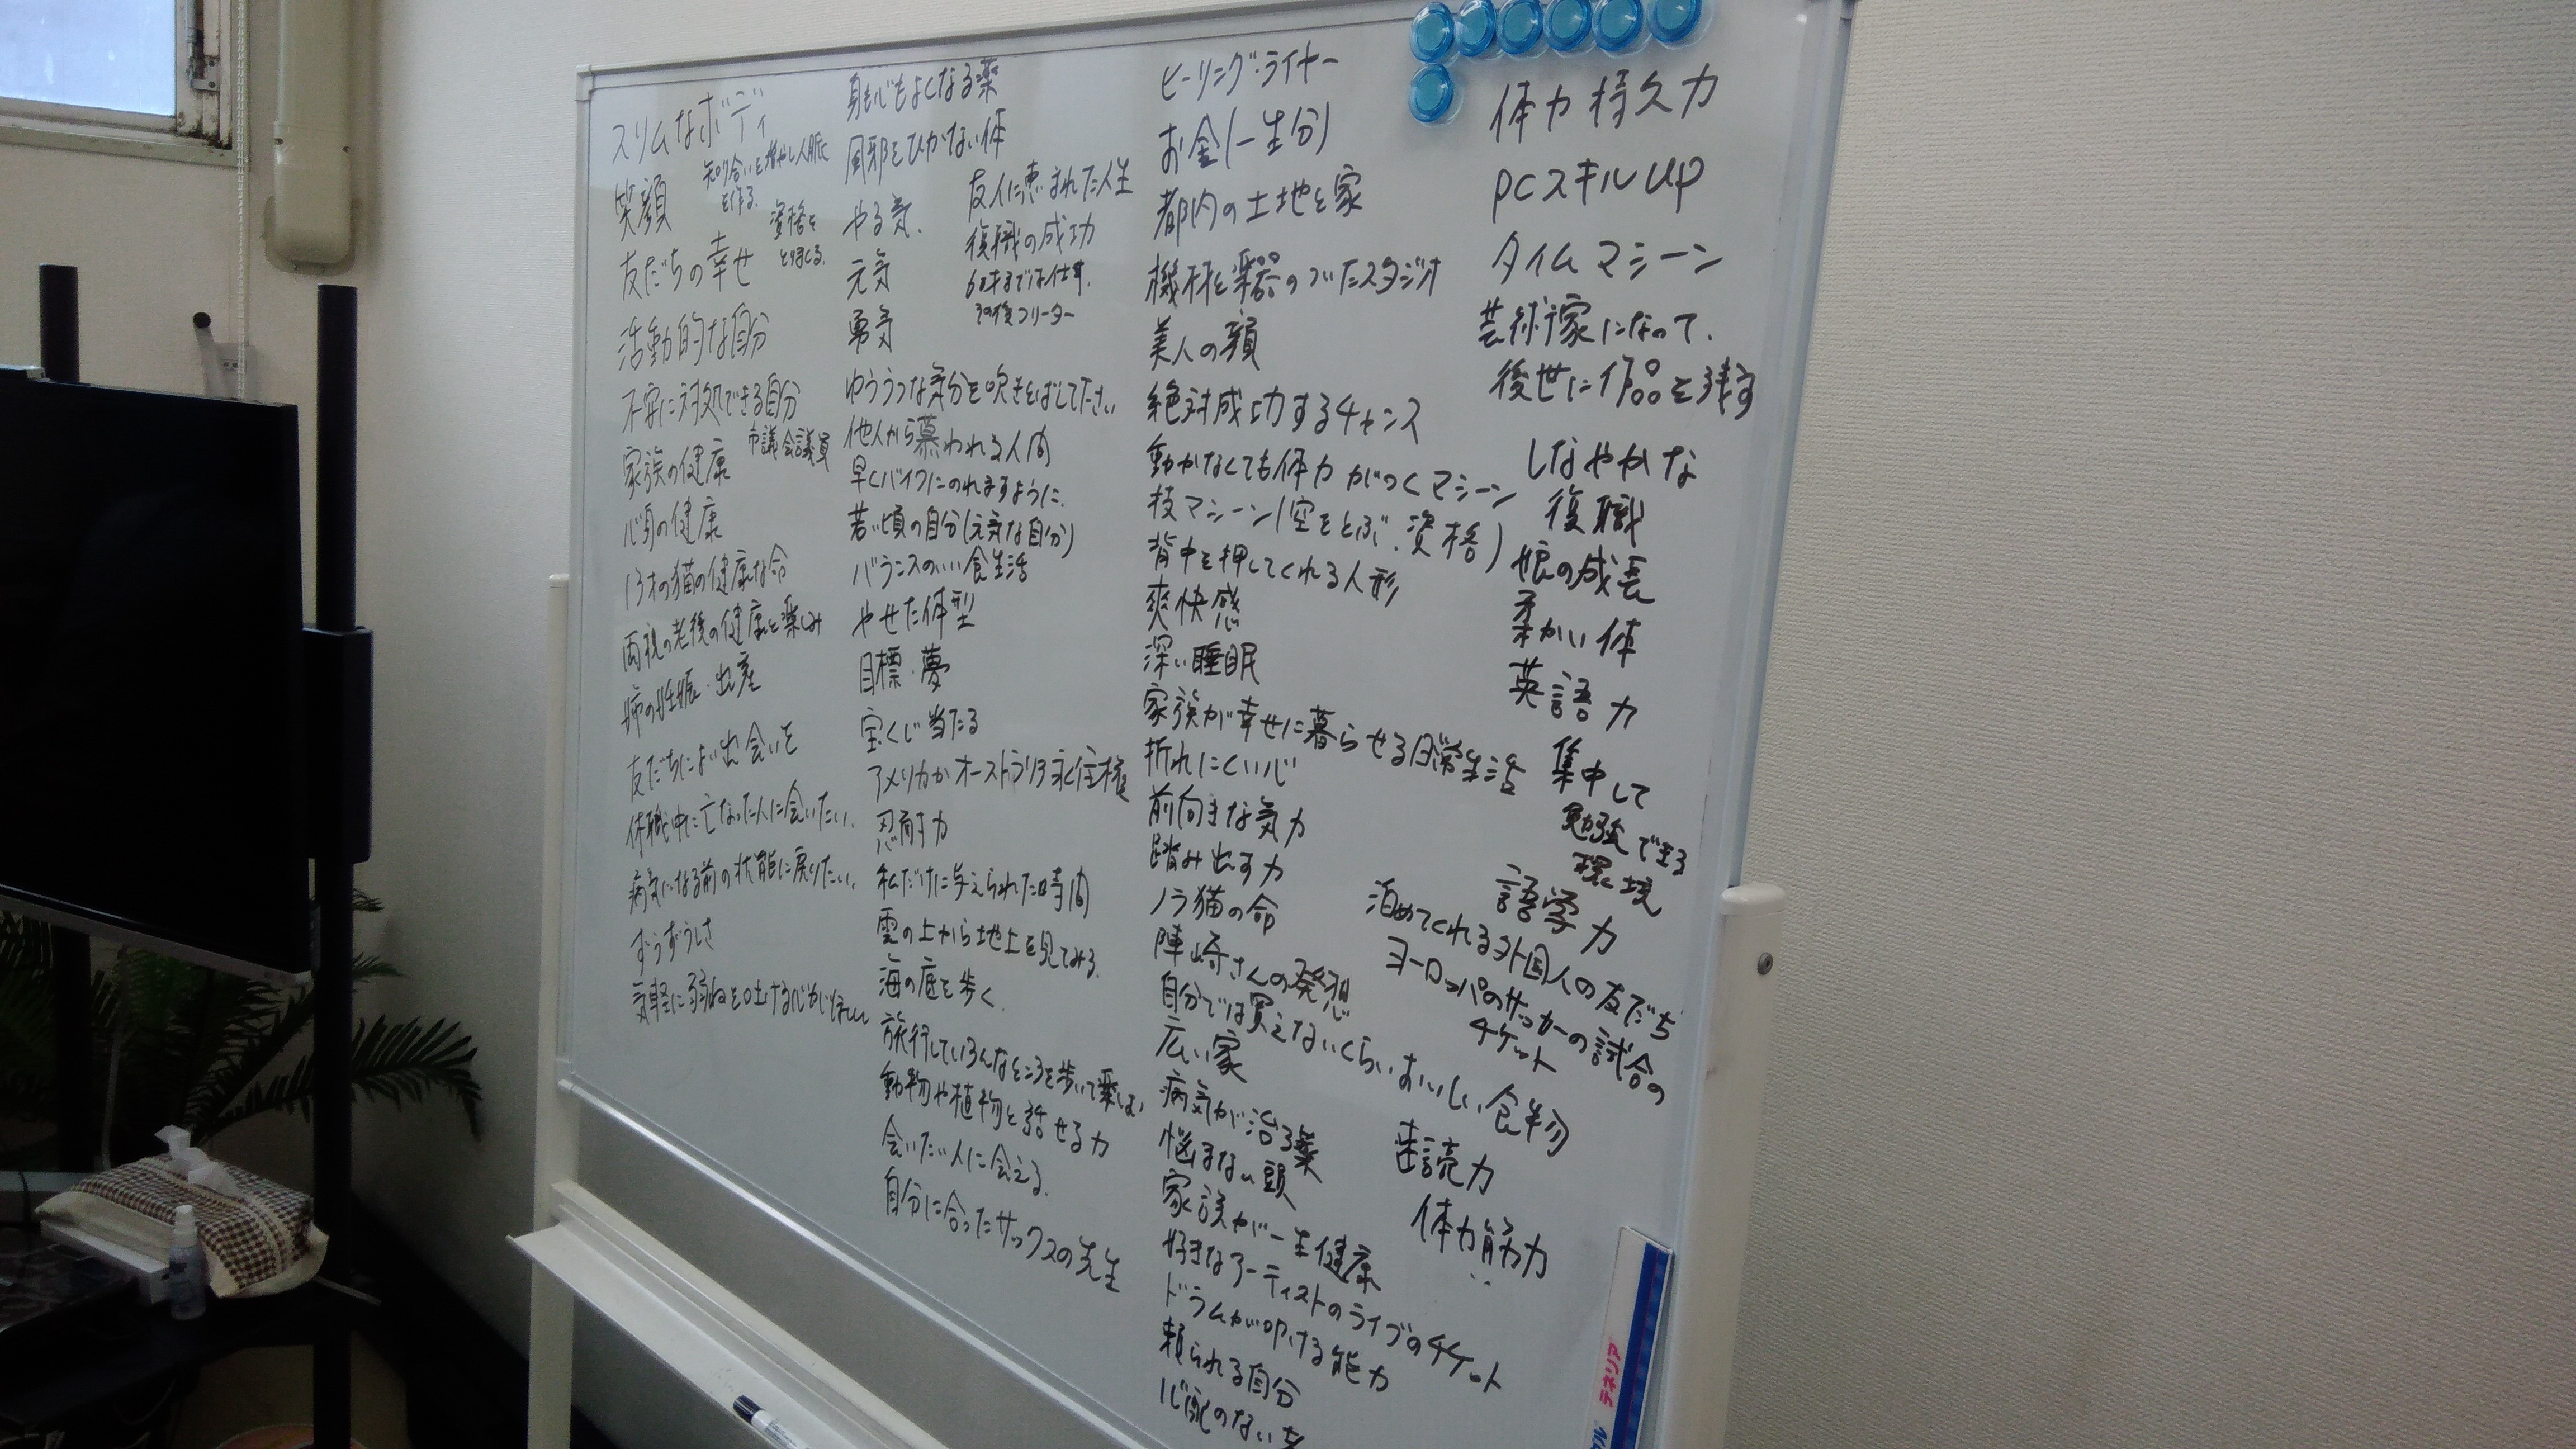 スリムなボディ
知り合いを増やし人脈
を作る.
笑顔
資格を
とりまくる.
友だちの幸せ
活動的な自分
不安に対処できる自分
市議会議員
家族の健康
心身の健康
13才の猫の健康な命
両親の老後の健康と楽しみ
姉の妊娠・出産
友だちによい出会いを
休職中に亡なった人に会いたい.
病気になる前の状態に戻りたい.
ずうずうしさ
気軽に弱ねを吐ける
身も心もよくなる薬
風邪をひかない体
友人に恵まれた人生
やる気.
復職の成功
元気
60才までは仕事.
その後フリーター
勇気
ゆううつな気分を吹きとばして下さい
他人から慕われる人間
早くバイクにのれますように.
若い頃の自分(元気な自分)
バランスのいい食生活
やせた体型
目標・夢
宝くじ当たる
アメリカかオーストラリア永住権
忍耐力
私だけに与えられた時間
雲の上から地上を見てみる.
海の底を歩く.
旅行していろんなところを歩いて楽しむ
動物や植物と話せる力
会いたい人に会える.
自分に合ったサックスの先生
ヒーリング・ライヤー
お金(一生分)
都内の土地と家
機材と楽器のついたスタジオ
美人の顔
絶対成功するチャンス
動かなくても体力がつくマシーン
技マシーン(空をとぶ.資格)
背中を押してくれる人形
爽快感
深い睡眠
家族が幸せに暮らせる日常生活
折れにくい心
前向きな気力
踏み出す力
ノラ猫の命
陣崎さんの発想
自分では買えないくらいおいしい食べ物
広い家
病気が治る薬
悩まない頭
家族が一生健康
好きなアーティストのライブのチケット
ドラムが叩ける能力
頼られる自分
心配のない
体力持久力
PCスキルUP
タイムマシーン
芸術家になって.
後世に作品を残す
しなやかな
復職
娘の成長
柔かい体
英語力
集中して
勉強できる
環境
語学力
泊めてくれる外国人の友だち
ヨーロッパのサッカーの試合の
チケット
速読力
体力筋力
テネリア